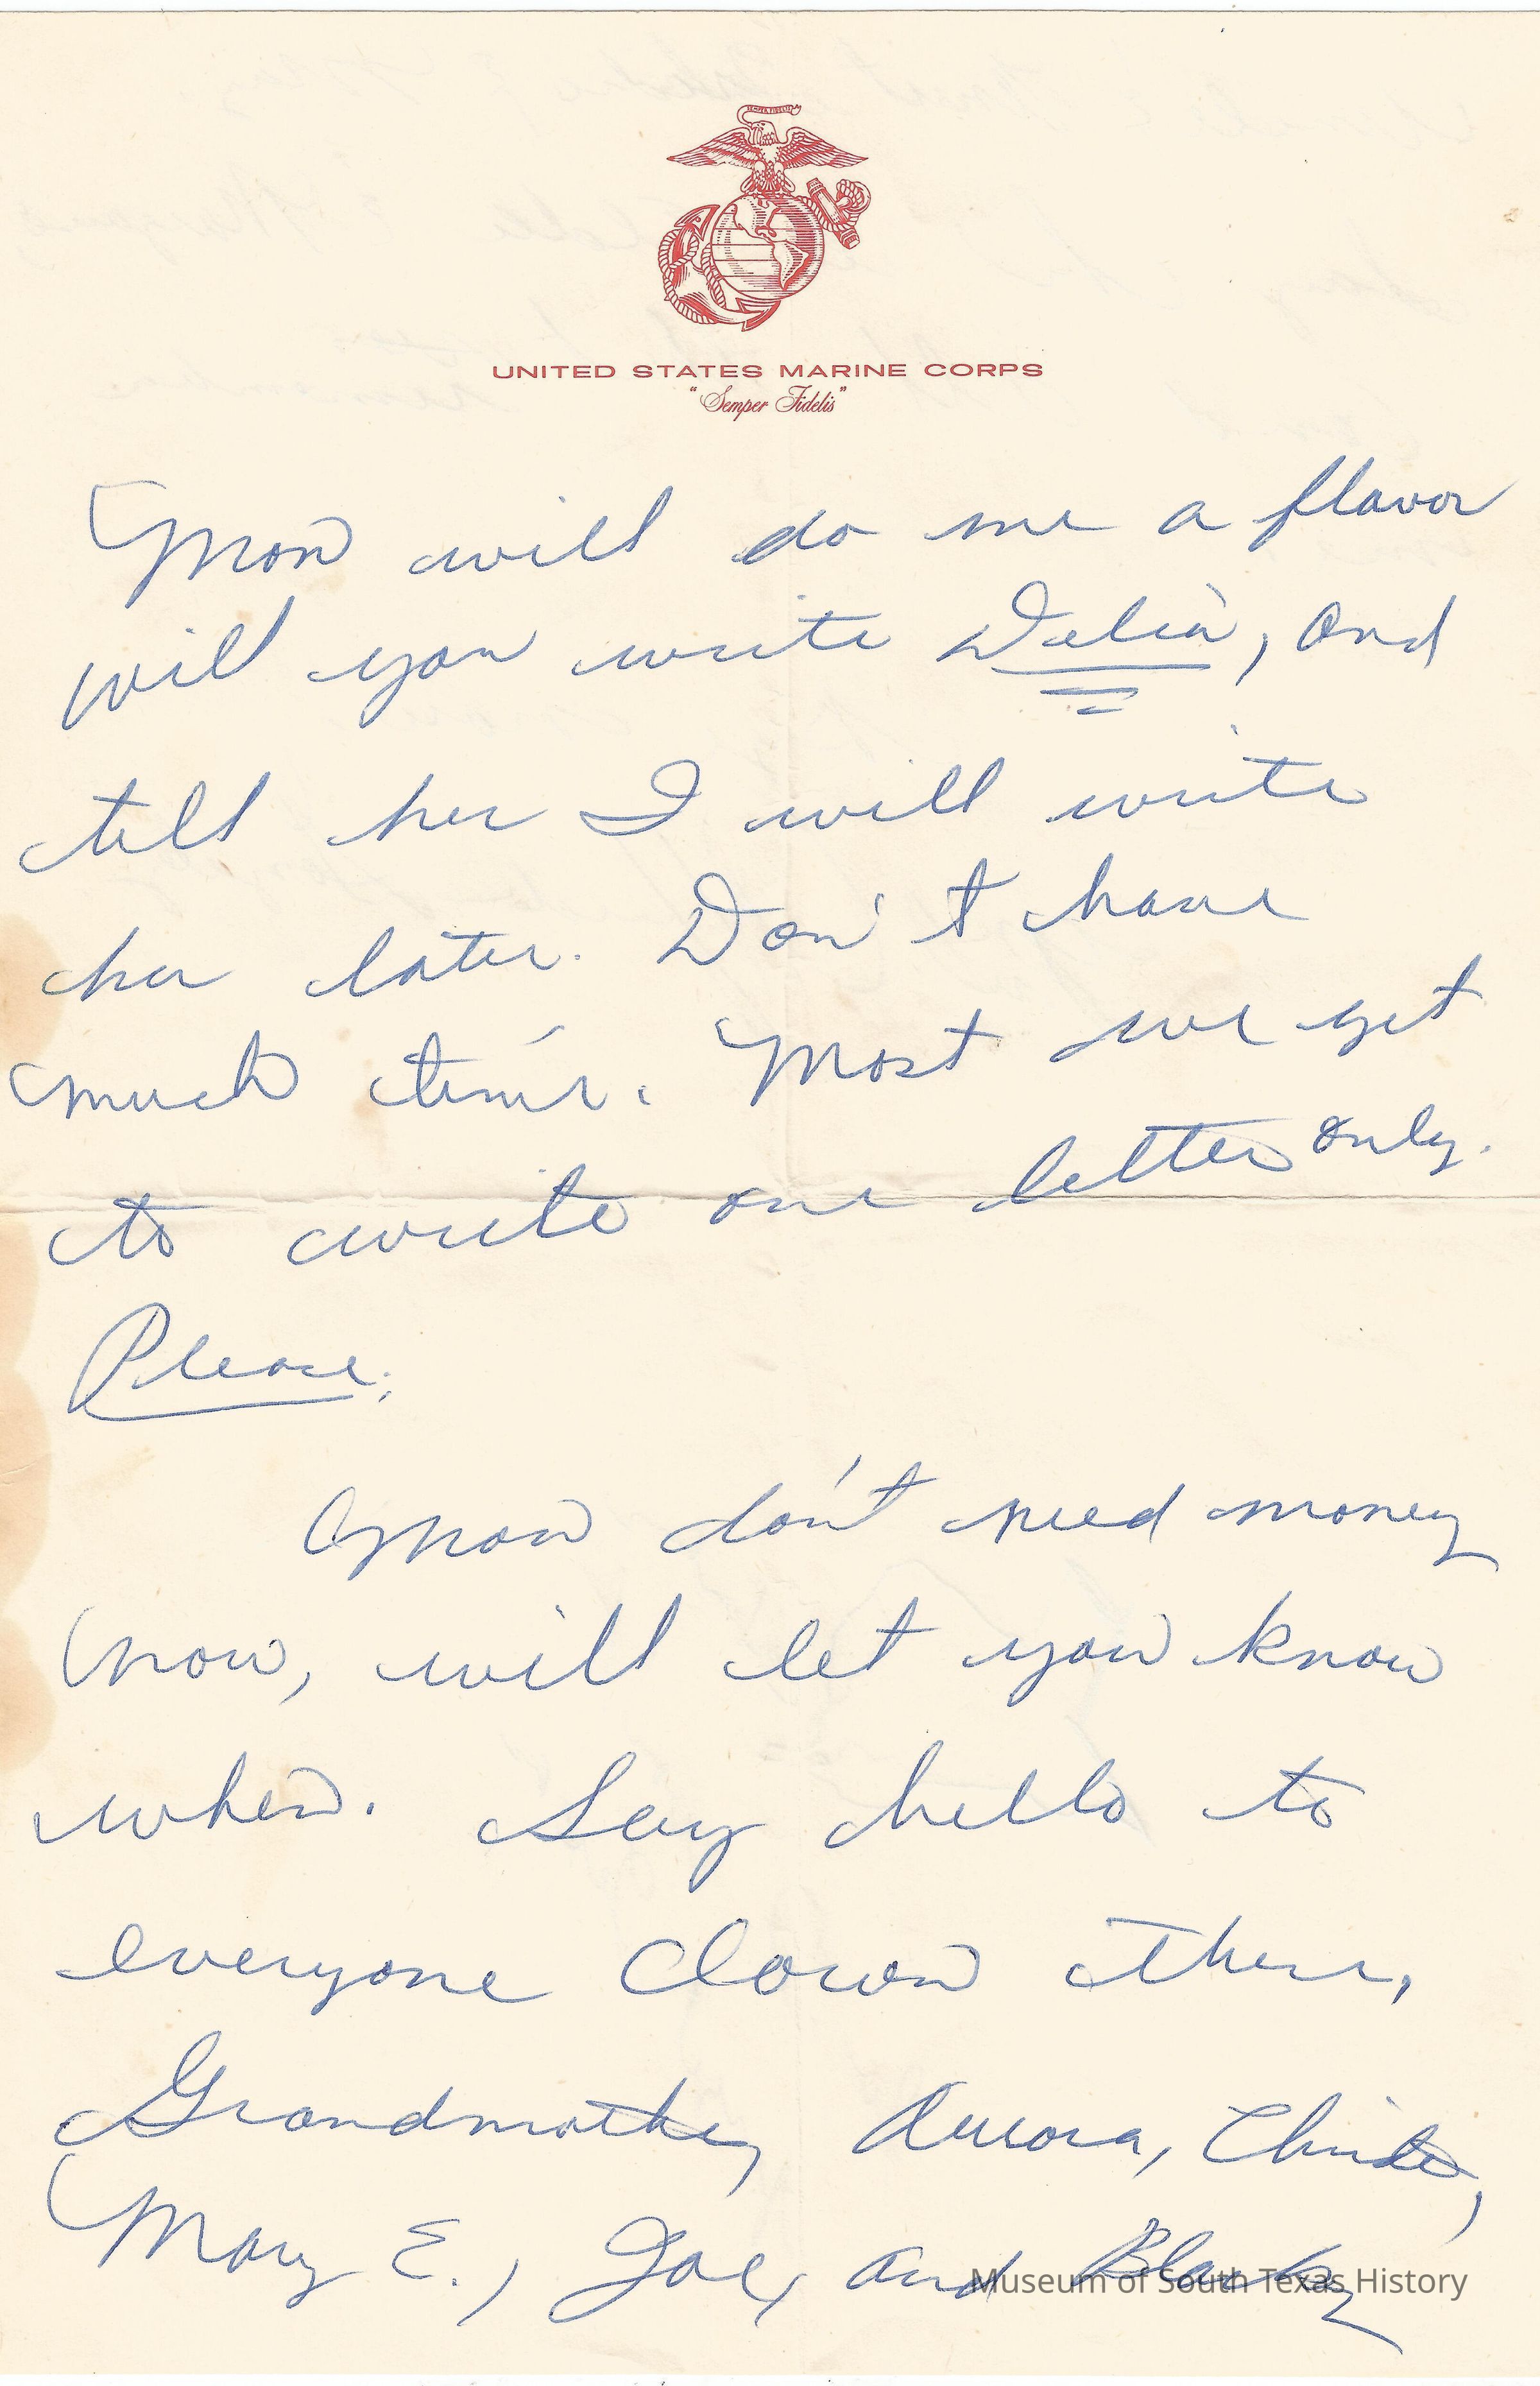 SEMPER FIDELIS
UNITED STATES MARINE CORPS
"Semper Fidelis"
Mom will do me a flavor
will you write Delia, and
tell her I will write
her later. Don't have
much time. Most we get
to write one letter only.
Please.
Mom don't need money
now, will let you know
when. Say hello to
everyone down there,
Grandmother, Aurora,
Mary E., Joe, and Blacky
Museum of South Texas History